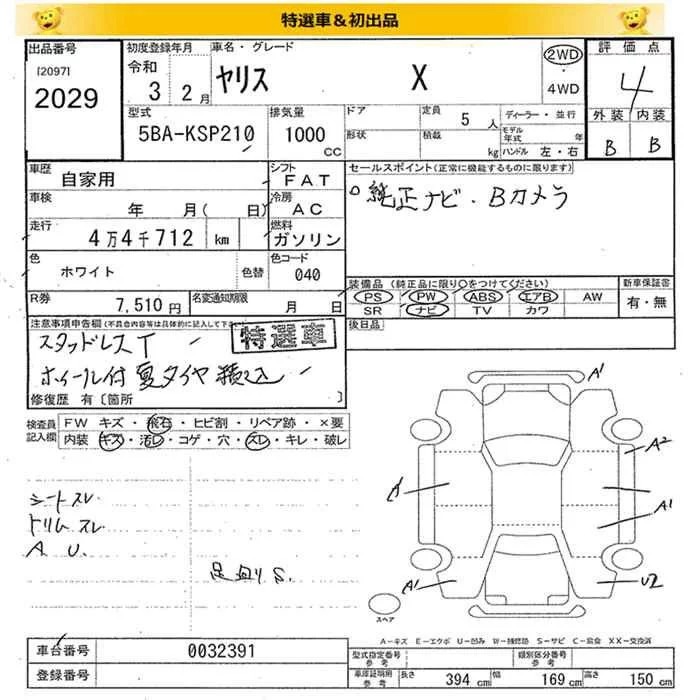 特選車＆初出品
出品番号
[2097]
2029
初度登録年月
令和
3 2月
車名・グレード
ヤリス X
2WD
・
4WD
評価点
4
外装 内装
B B
型式
5BA-KSP210
排気量
1000
CC
ドア
形状
定員 5 人
積載 kg
ディーラー・並行
モデル年式 年
ハンドル 左・右
車歴
自家用
シフト
FAT
車検
年 月( 日)
冷房
AC
走行
4万4千712 km
燃料
ガソリン
色
ホワイト
色替
色コード
040
R券
7,510円
名変通知期限
月 日
セールスポイント(正常に機能するものに限ります)
純正ナビ・Bカメラ
装備品(純正品に限り○をつけてください)
PS PW ABS エアB AW
SR ナビ TV カワ
新車保証書
有・無
後日品
注意事項申告欄(不具合内容等は具体的に記入して下さい)
特選車
スタッドレスT
ホイール付夏タイヤ積込
修復歴 有〔箇所 〕
検査員記入欄
FW キズ・飛石・ヒビ割・リペア跡・×要
内装 キズ・汚レ・コゲ・穴・スレ・キレ・破レ
シートスレ
トリムスレ
A U.
足廻りS.
A1
A2
A1
A1
U2
スペア
A－キズ E－エクボ U－凹み W－補修跡 S－サビ C－腐食 XX－交換済
車台番号
0032391
登録番号
型式指定番号
参考
類別区分番号
参考
車庫証明用
参考
長さ 394 cm
幅 169 cm
高さ 150 cm